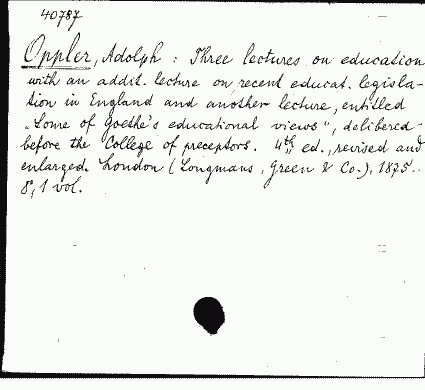 40787
Oppler, Adolph : Three lectures on education
with an addit. lecture on recent educat. legisla-
tion in England and another lecture, entitled
„Some of Goethe's educational views", delibered
before the College of preceptors. 4th ed., revised and
enlarged. London (Longmans, Green & Co.), 1875.
8°, 1 vol.